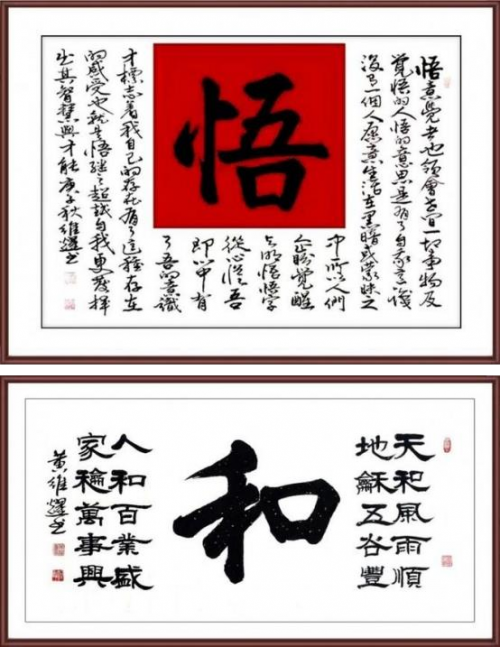 悟
悟意覺者也領會一切事物及
覺悟的人悟的意思是明了自我意識
没有一個人愿意生活在黑暗或蒙昧之
中所以人們
企盼覺醒
与明悟悟字
從心從吾
即心中有
了吾的意識
才標志着我自己的存在有了這種存在
的感受也就是悟继之超自我更發揮
出其智慧與才能庚子秋維耀书
天和風雨順
地龢五谷豐
和
人和百業盛
家萬事興
黄維耀书